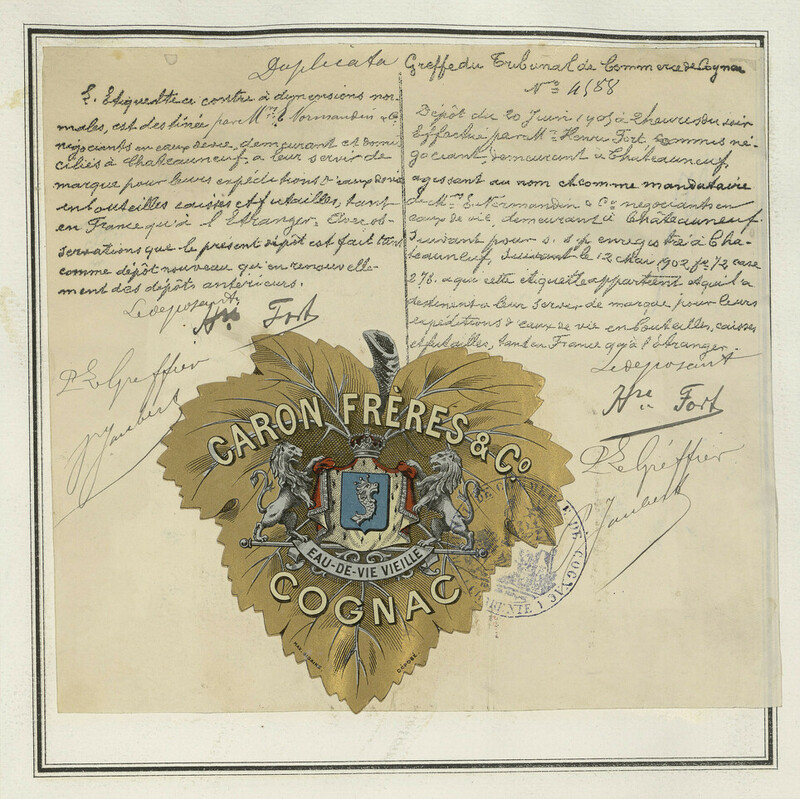 Duplicata
L'Etiquette ci contre à dimensions nor-
males, est destinée par Mr E. Normandin & Co
négociants en eaux de vie, demeurant et domi-
ciliés à Chateauneuf, a leur servir de
marque pour leurs expéditions d'eaux de vie
en bouteilles caisses et futailles, tant
en France qu'à l'Etranger. Avec ob-
servations que le présent dépôt est fait tant
comme dépôt nouveau qu'en renouvelle-
ment des dépôts antérieurs.
Le déposant
Hre Fort
P. Le Greffier
Greffe du Tribunal de Commerce de Cognac
No 4588
Dépôt du 20 Juin 1905 à heures du soir
Effectué par Mr Henri Fort commis né-
gociant, demeurant à Châteauneuf,
agissant au nom et comme mandataire
de Mr E. Normandin & Co négociants en
eaux de vie, demeurant à Châteauneuf
suivant pour s. s/p enregistré à Châ-
teauneuf, suivant le 12 Mai 1902 fo 72 case
276. a que cette étiquette appartient et qu'il a
destinent a leur servir de marque pour leurs
expéditions d'eaux de vie en bouteilles, caisses
et futailles, tant en France qu'à l'étranger.
Le déposant
Hre Fort
P. Le Gréffier
CARON FRÈRES & Co
EAU-DE-VIE VIEILLE
COGNAC
DÉPOSÉ
DE COMMERCE DE COGNAC
CHARENTE